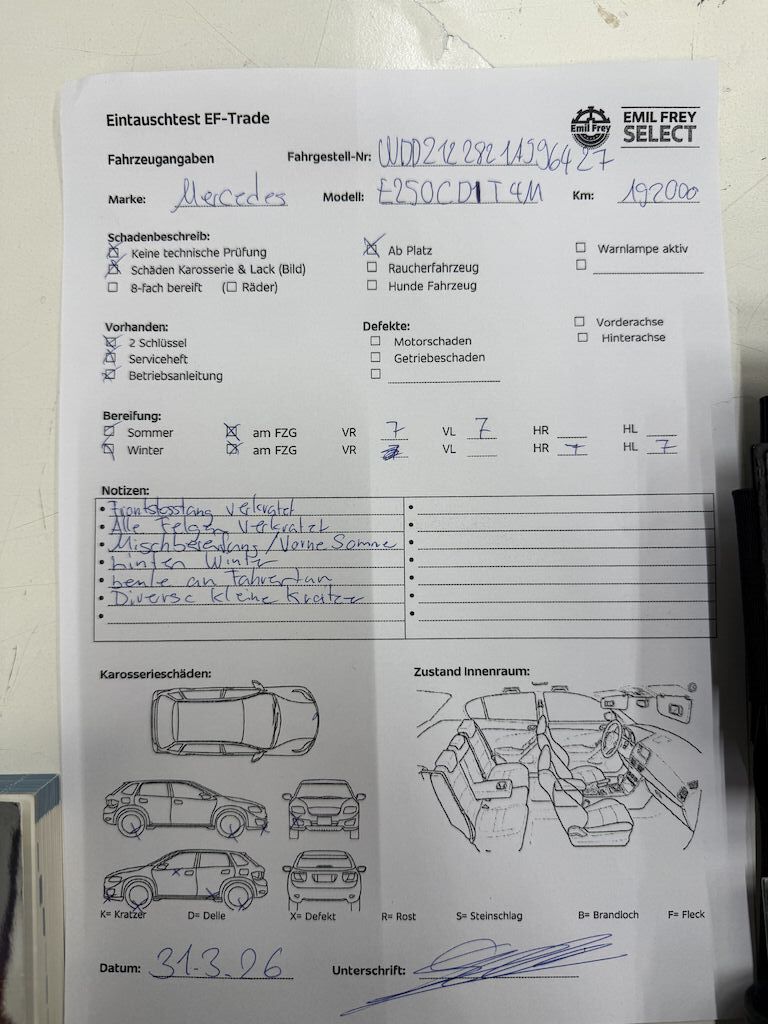 Eintauschtest EF-Trade
Emil Frey
EMIL FREY
SELECT
Fahrzeugangaben Fahrgestell-Nr: WDD2122821A996427
Marke: Mercedes Modell: E250CDI T 4M Km: 192000
Schadenbeschreib:
Keine technische Prüfung Ab Platz Warnlampe aktiv
Schäden Karosserie & Lack (Bild) Raucherfahrzeug
8-fach bereift ( Räder) Hunde Fahrzeug
Vorhanden: Defekte: Vorderachse
2 Schlüssel Motorschaden Hinterachse
Serviceheft Getriebeschaden
Betriebsanleitung
Bereifung:
Sommer am FZG VR 7 VL 7 HR HL
Winter am FZG VR VL HR 7 HL 7
Notizen:
• Frontstosstang verkratzt
• Alle Felgen verkratzt
• Mischbereifung / Vorne Somme
• hinten Winter
• beule an Fahrertür
• Diverse kleine Kratzer
Karosserieschäden: Zustand Innenraum:
K= Kratzer D= Delle X= Defekt R= Rost S= Steinschlag B= Brandloch F= Fleck
Datum: 31.3.26 Unterschrift: